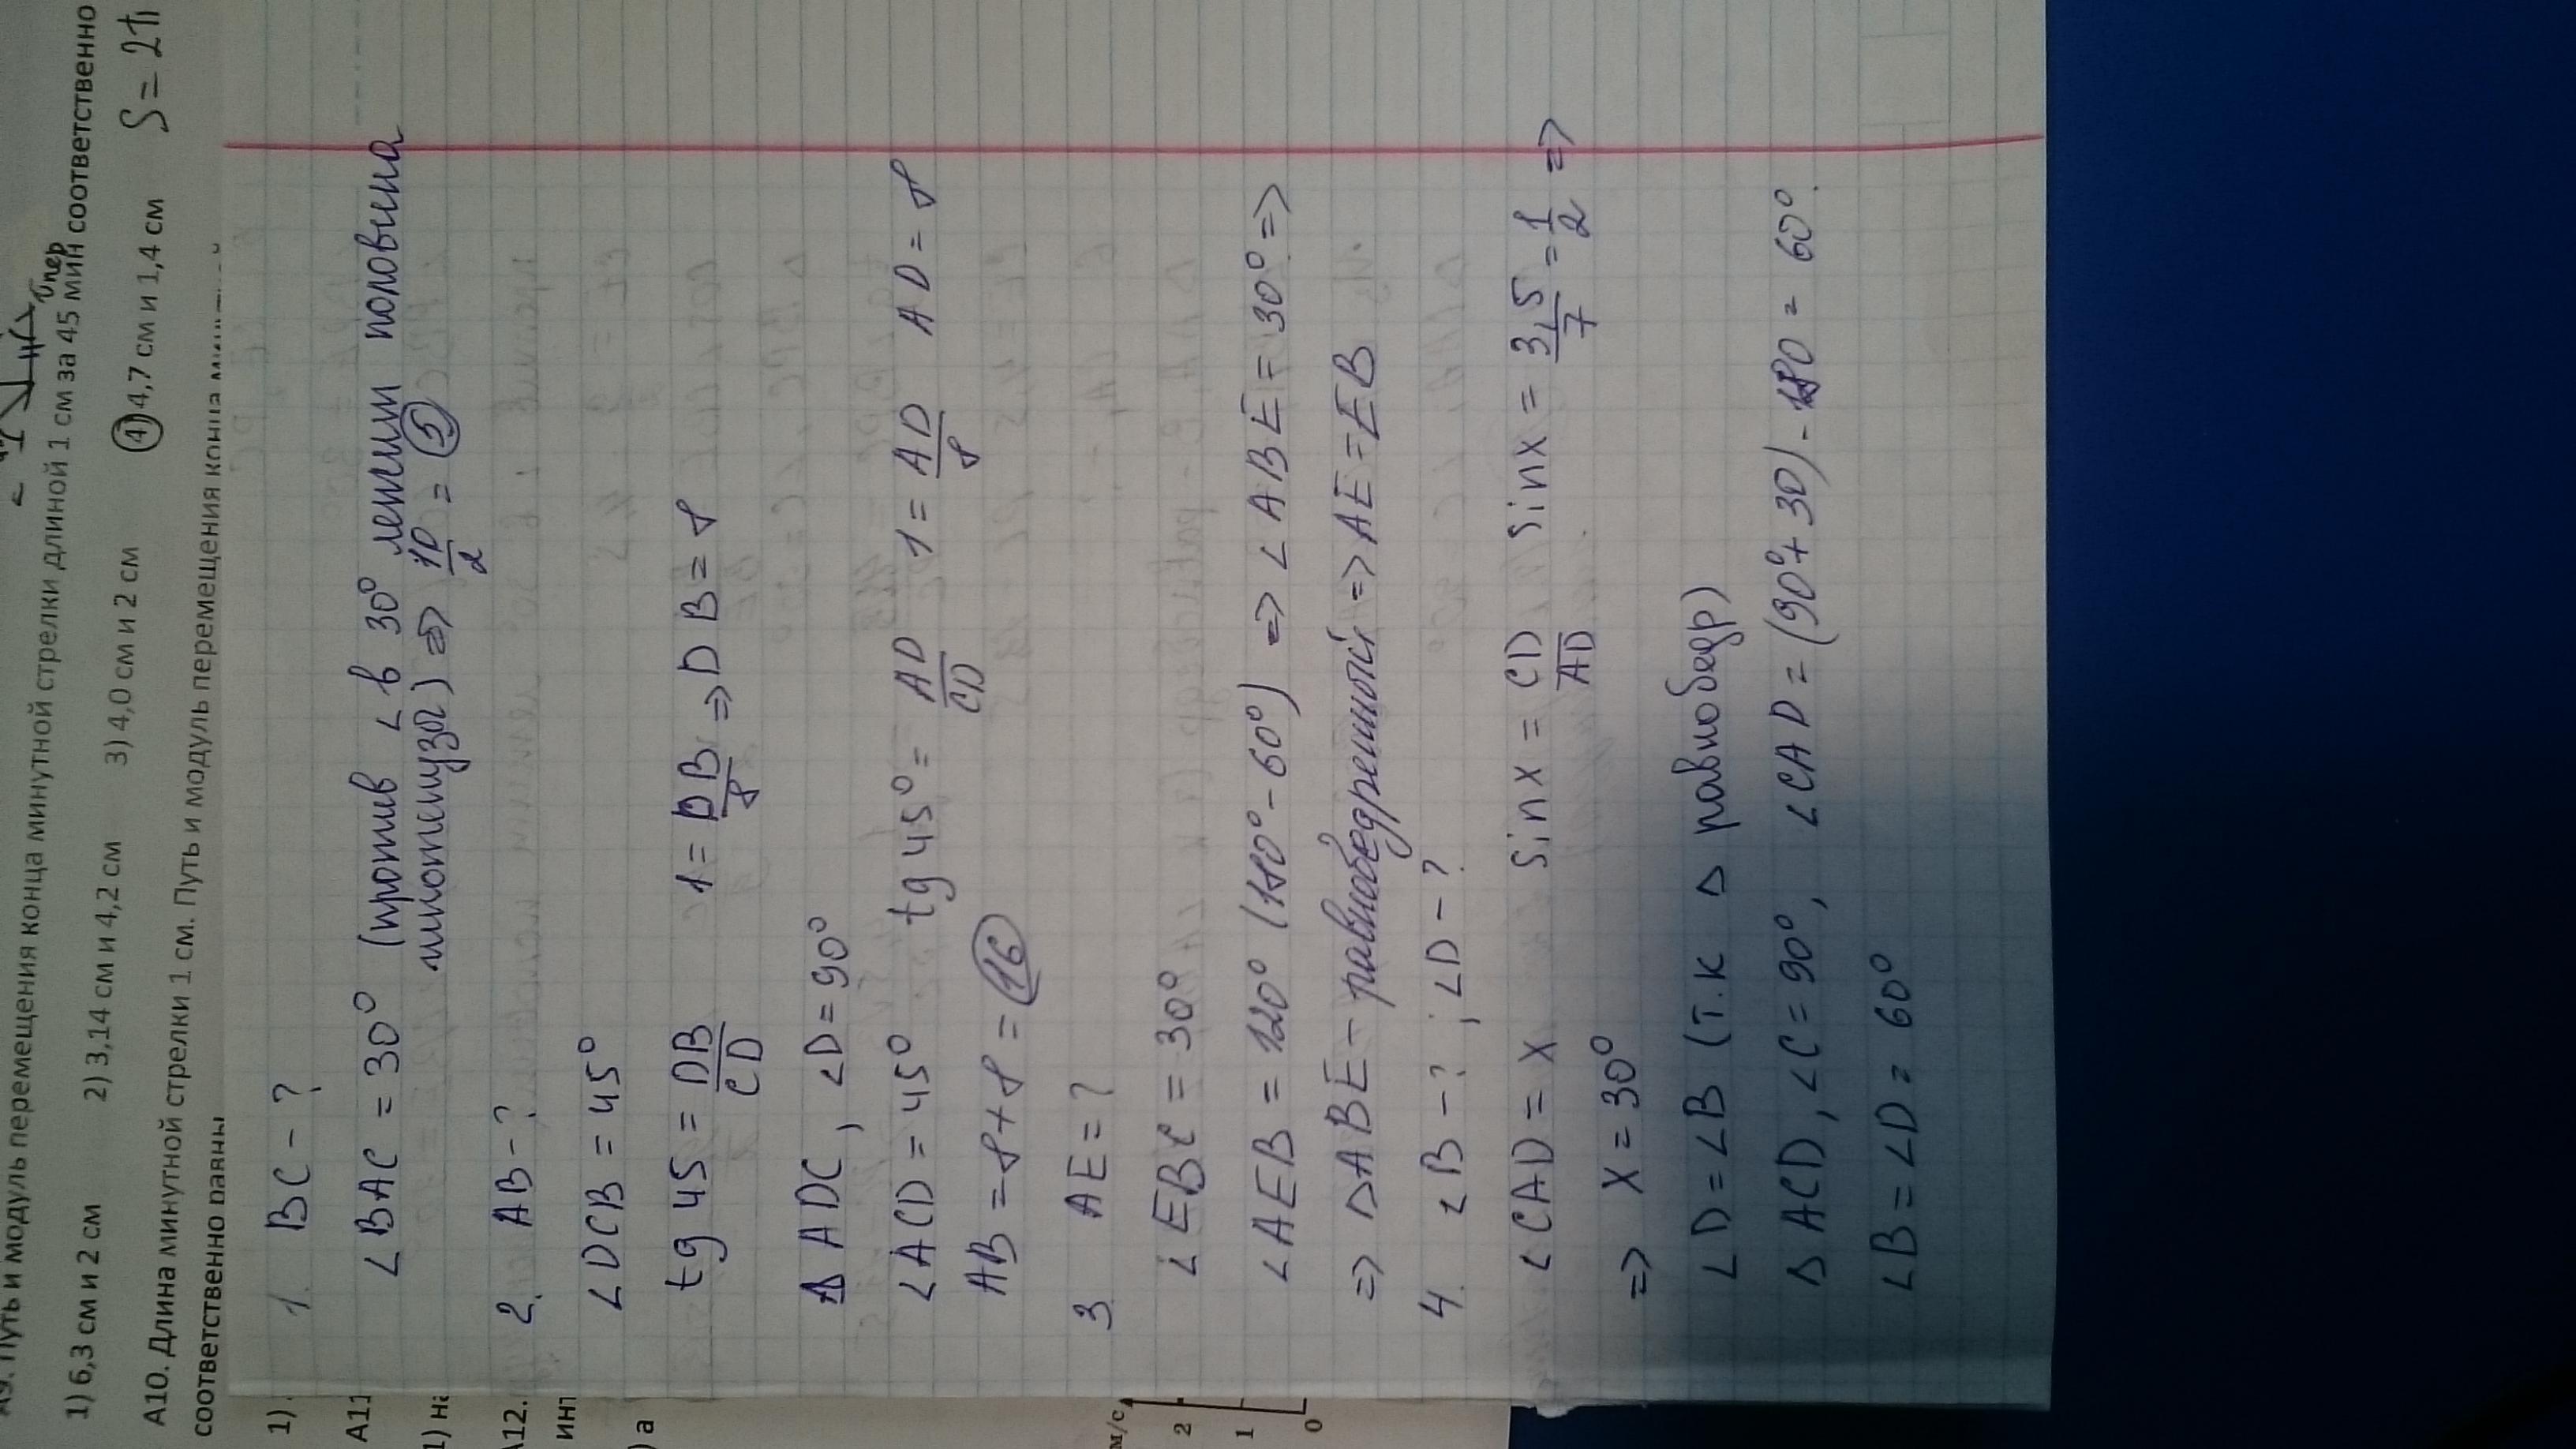 А9. Путь и модуль перемещения конца минутной стрелки длиной 1 см за 45 мин соответственно
1) 6,3 см и 2 см 2) 3,14 см и 4,2 см 3) 4,0 см и 2 см 4) 4,7 см и 1,4 см S = 2π
А10. Длина минутной стрелки 1 см. Путь и модуль перемещения конца
соответственно равны
υпер
1. BC - ?
∠BAC = 30° (против ∠ в 30° лежит половина
гипотенузы) => 10/2 = 5
2. AB - ?
∠DCB = 45°
tg 45 = DB/CD 1 = DB/8 => DB = 8
Δ ADC, ∠D = 90°
∠ACD = 45° tg 45° = AD/CD 1 = AD/8 AD = 8
AB = 8 + 8 = 16
3. AE = ?
∠EBC = 30°
∠AEB = 120° (180° - 60°) => ∠ABE = 30° =>
=> ΔABE - равнобедренный => AE = EB
4. ∠B - ? ; ∠D - ?
∠CAD = x sin x = CD/AD sin x = 3,5/7 = 1/2 =>
=> x = 30°
∠D = ∠B (т.к Δ равнобедр)
Δ ACD, ∠C = 90°, ∠CAD = (90° + 30) - 180 = 60°.
∠B = ∠D = 60°
1)
А11
1) на
А12.
инт
) а
м/с
2
1
0